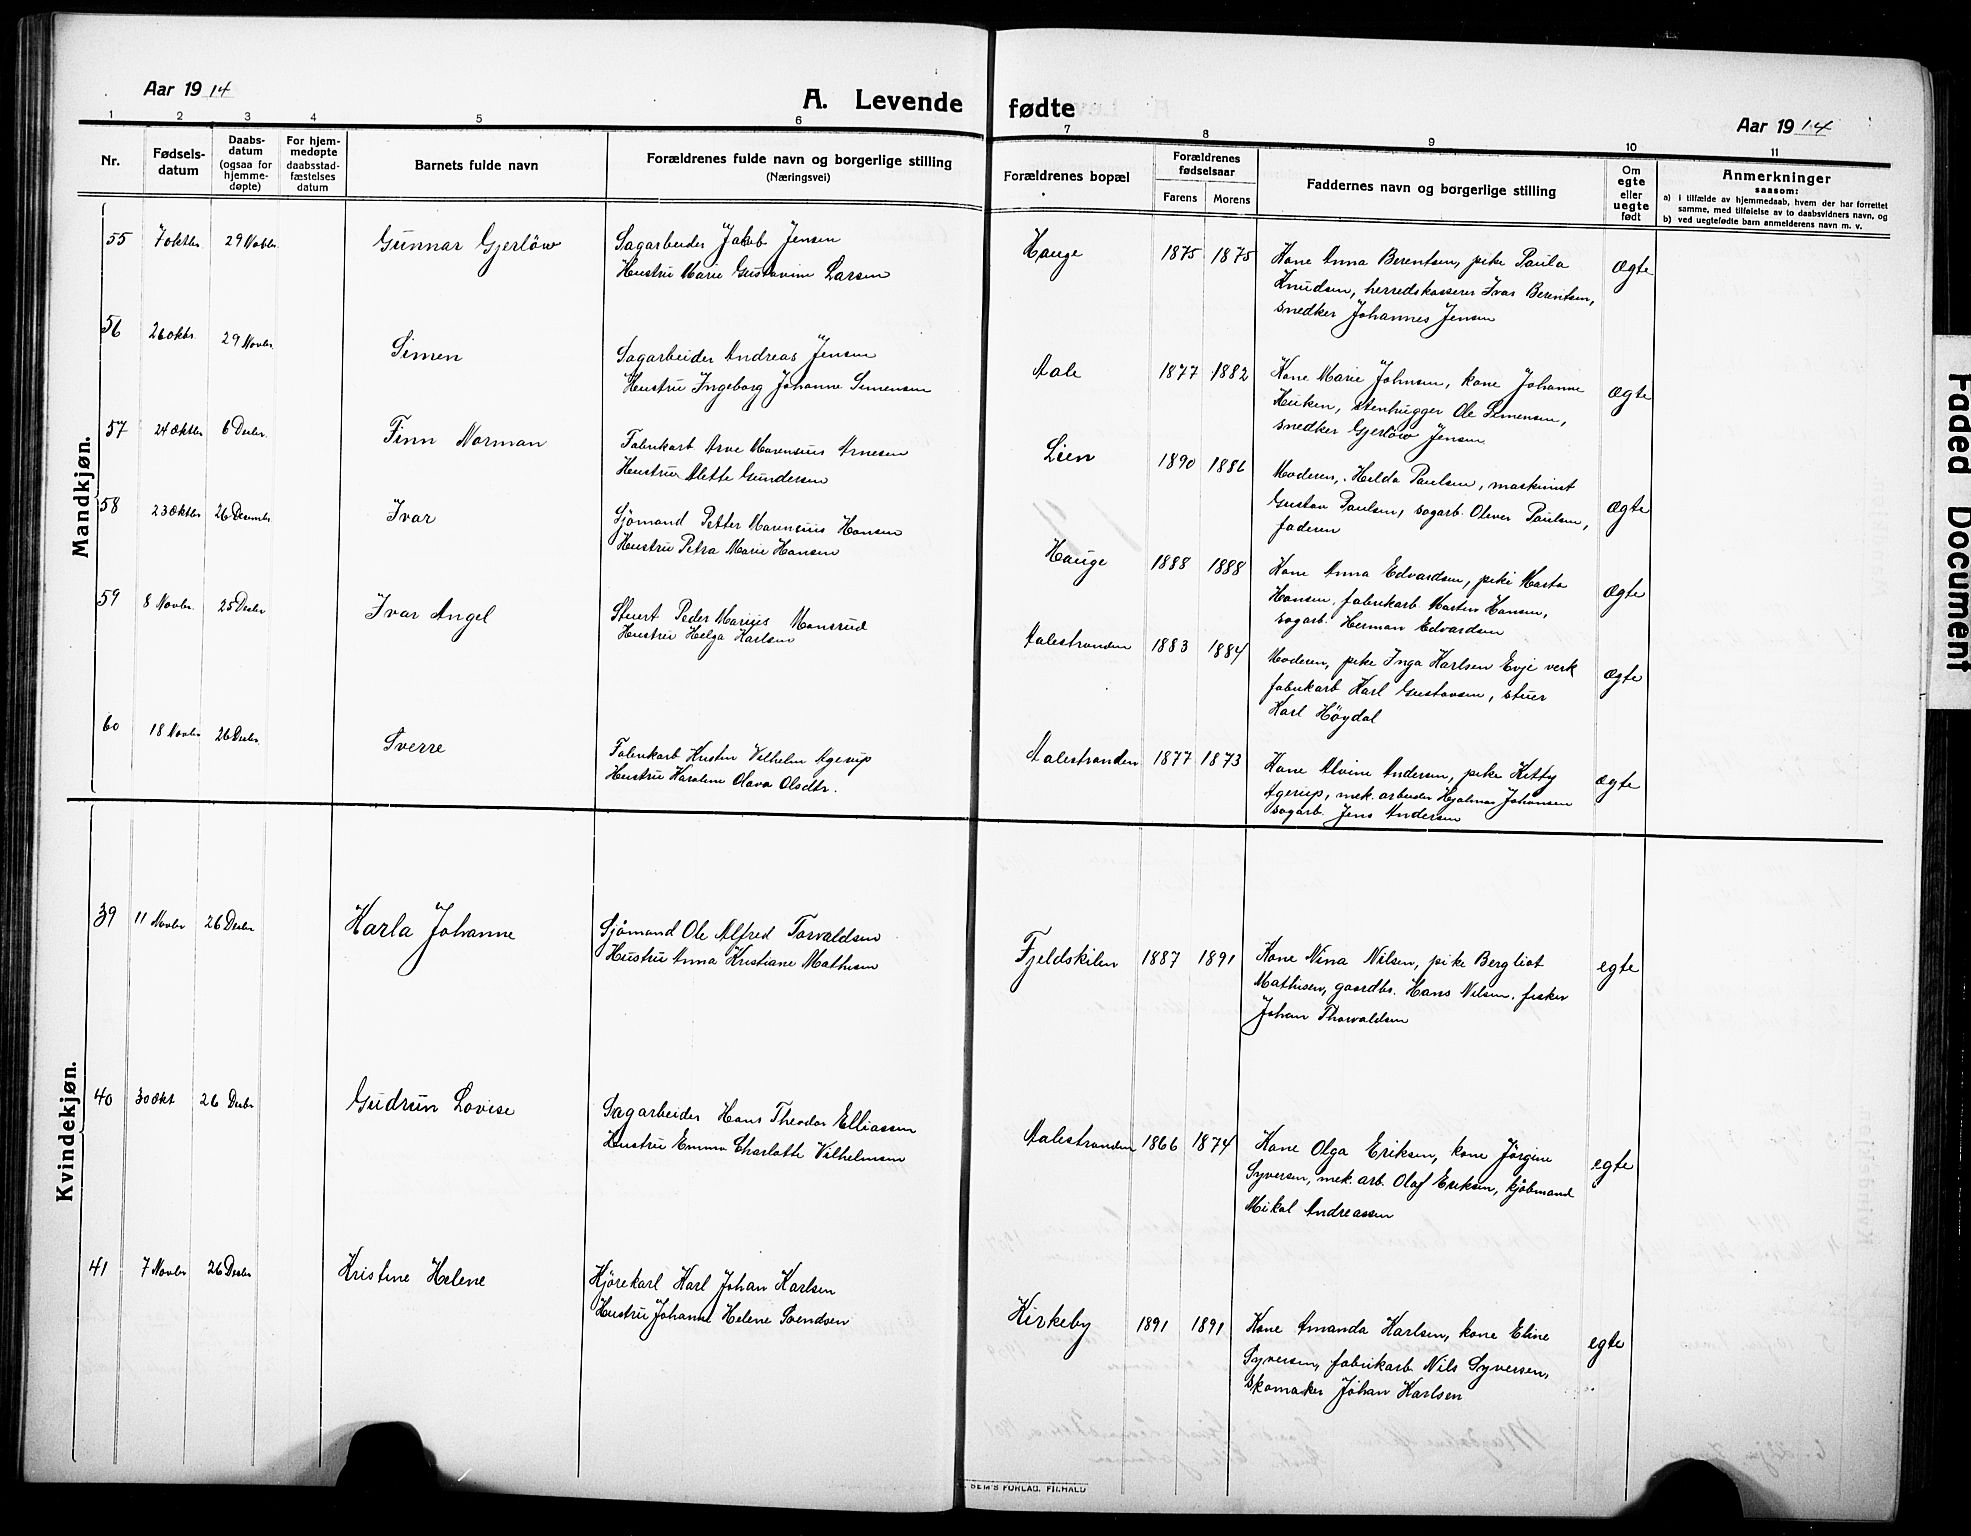 Aar 1914
A. Levende fødte
Aar 1914
1 2 3 4 5 6 7 8 9 10 11
Nr.
Fødsels-
datum
Daabs-
datum
(ogsaa for
hjemme-
døpte)
For hjem-
medøpte
daabsstad-
fæstelses
datum
Barnets fulde navn
Forældrenes fulde navn og borgerlige stilling
(Næringsvei)
Forældrenes bopæl
Forældrenes
fødselsaar
Farens Morens
Faddernes navn og borgerlige stilling
Om
egte
eller
uegte
født
Anmerkninger
saasom:
a) i tilfælde av hjemmedaab, hvem der har forrettet
samme, med tilføielse av to daabsvidners navn, og
b) ved uegtefødte barn anmelderens navn m. v.
Mandkjøn.
55 7 oktbr. 29 Novbr. Gunnar Gjerløw
Sagarbeider Jakob Jensen
Hustru Marie Gustavine Larsen
Hauge 1875 1875
Kone Anna Berentsen, pike Paula
Knudsen, herredskasserer Ivar Berentsen,
snedker Johannes Jensen
Ægte
56 26 oktbr. 29 Novbr. Simen
Sagarbeider Andreas Jensen
Hustru Ingeborg Johanne Simensen
Aale 1877 1882
Kone Marie Johnsen, kone Johanne
Huken, stenhugger Ole Simensen,
snedker Gjerløw Jensen
Ægte
57 24 Oktbr 6 Desbr. Finn Norman
Fabrikarb Arve Marensius Arnesen
Hustru Alette Gundersen
Lien 1890 1886
Moderen, Hilda Paulsen, maskinist
Gustav Paulsen, sagarb. Oliver Paulsen,
faderen
Ægte
58 23 Oktbr 26 Desember Ivar
Sjømand Petter Marensius Hansen
Hustru Petra Marie Hansen
Hauge 1888 1888
Kone Anna Edvardsen, pike Marta
Hansen, fabrikarb. Martin Hansen,
sagarb. Herman Edvardsen
Ægte
59 8 Novbr. 25 Desbr Ivar Angel
Stuert Peder Marius Monsrud
Hustru Helga Karlsen
Aalestranden 1883 1884
Moderen, pike Inga Karlsen Evje verk
fabrikarb Karl Gustavsen, stuer
Karl Høydal
Ægte
60 18 Novbr 26 Desbr. Sverre
Fabrikarb Kristen Vilhelm Agerup
Hustru Karoline Olava Olsdtr.
Aalestranden 1877 1873
Kone Alvine Andersen, pike Kitty
Agerup, mek. arbeider Hjalmar Johansen
sagarb. Jens Andersen
Ægte
Kvindekjøn.
39 11 Novbr 26 Desbr Karla Johanne
Sjømand Ole Alfred Torvaldsen
Hustru Anna Kristiane Mathisen
Fjeldskilen 1887 1891
Kone Nina Nilsen, pike Bergliot
Mathisen, gaardbr. Hans Nilsen, fisker
Johan Thorvaldsen
egte
40 30 Okt 26 Desbr Gudrun Lovise
Sagarbeider Hans Theodor Elliassen
Hustru Emma Charlotte Vilhelmsen
Aalestranden 1866 1874
Kone Olga Eriksen, kone Jørgine
Syversen, mek. arb. Olaf Eriksen, kjøbmand
Mikal Andreassen
egte
41 7 Novbr 26 Desbr Kristine Helene
Kjørekarl Karl Johan Karlsen
Hustru Johanne Helene Svendsen
Kirkeby 1891 1891
Kone Amanda Karlsen, kone Eline
Syversen, fabrikarb. Nils Syversen,
skomaker Johan Karlsen
egte
SEM'S FORLAG, FR.HALD
Faded Document